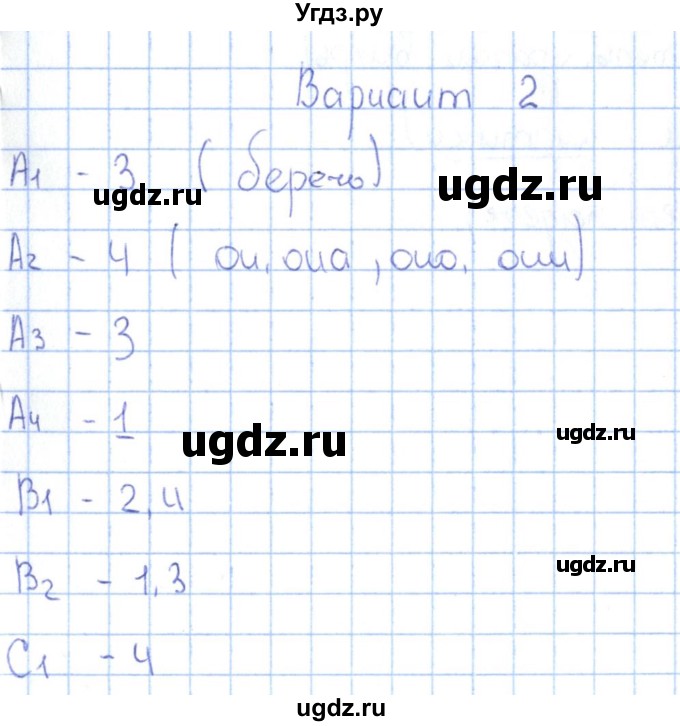 Угдз.ру
Вариант 2
A1 - 3 ( беречь)
ugdz.ru
ugdz.ru
A2 - 4 ( он, она, оно, они)
A3 - 3
A4 - 1
ugdz.ru
ugdz.ru
B1 - 2,4
B2 - 1,3
ugdz.ru
C1 - 4
ugdz.ru